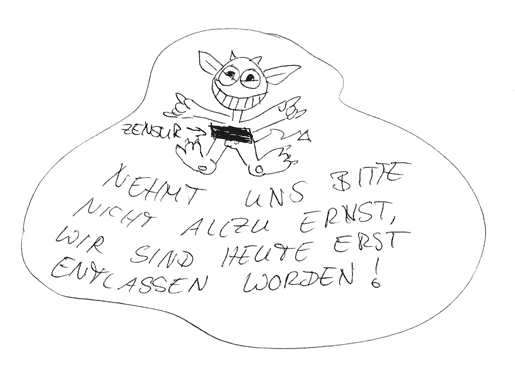 ZENSUR
NEHMT UNS BITTE
NICHT ALLZU ERNST,
WIR SIND HEUTE ERST
ENTLASSEN WORDEN!